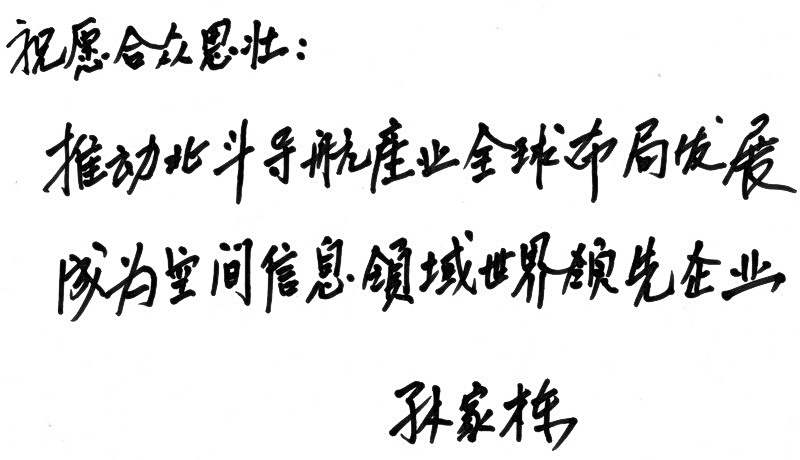 祝愿合众思壮：
推动北斗导航産业全球布局发展
成为空间信息領域世界领先企业
孙家栋